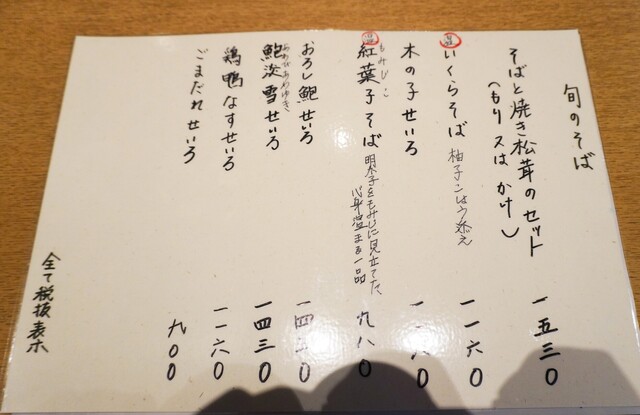 旬のそば
そばと焼き松茸のセット 一五三〇
(もり又は かけ)
温 いくらそば 柚子こしょう添え 一一六〇
木の子せいろ
温 紅葉子そば 明太子をもみじに見立てた、 九八〇
もみじこ
心身温まる一品
おろし鮑せいろ
鮑淡雪せいろ 一四三〇
あわびあわゆき
鶏鴨なすせいろ 一一六〇
ごまだれせいろ 九〇〇
全て税抜表示